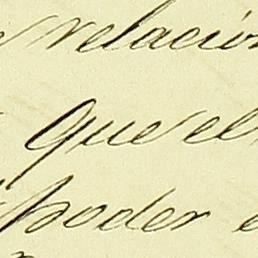 relación
que el
poder